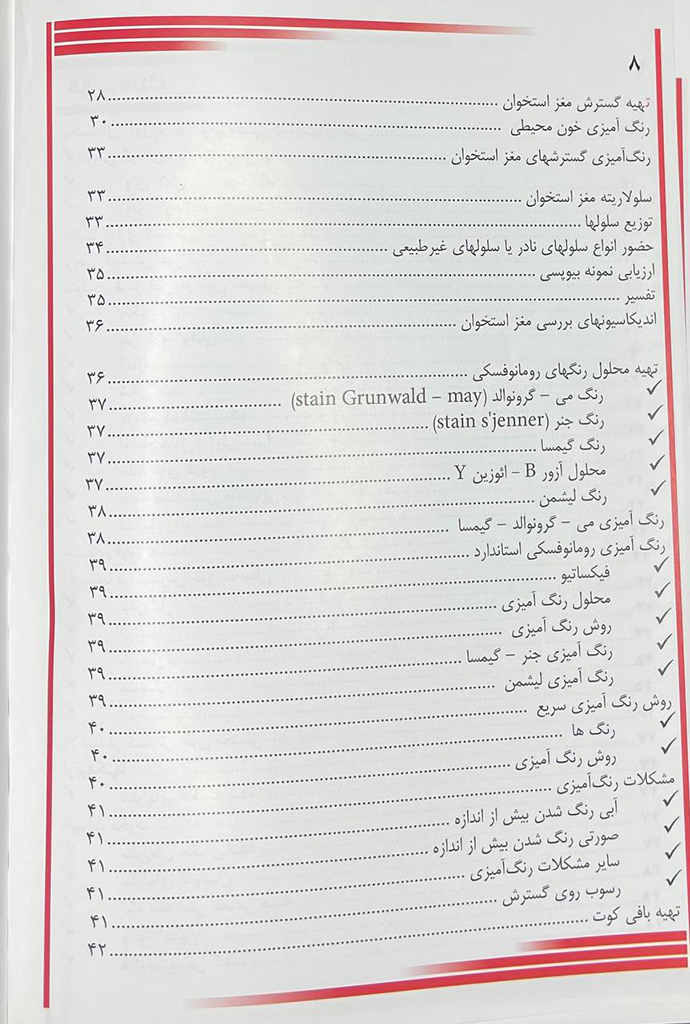 ۸
تهیه گسترش مغز استخوان ........ ۲۸
رنگ آمیزی خون محیطی ........ ۳۰
رنگ‌آمیزی گسترشهای مغز استخوان ........ ۳۳
سلولاریته مغز استخوان ........ ۳۳
توزیع سلولها ........ ۳۳
حضور انواع سلولهای نادر یا سلولهای غیرطبیعی ........ ۳۴
ارزیابی نمونه بیوپسی ........ ۳۵
تفسیر ........ ۳۵
اندیکاسیونهای بررسی مغز استخوان ........ ۳۶
تهیه محلول رنگهای رومانوفسکی ........ ۳۶
✓ رنگ می – گرونوالد (stain Grunwald – may) ........ ۳۷
✓ رنگ جنر (stain s'jenner) ........ ۳۷
✓ رنگ گیمسا ........ ۳۷
✓ محلول آزور B – ائوزین Y ........ ۳۷
✓ رنگ لیشمن ........ ۳۸
رنگ آمیزی می – گرونوالد – گیمسا ........ ۳۸
رنگ آمیزی رومانوفسکی استاندارد ........ ۳۹
✓ فیکساتیو ........ ۳۹
✓ محلول رنگ آمیزی ........ ۳۹
✓ روش رنگ آمیزی ........ ۳۹
✓ رنگ آمیزی جنر – گیمسا ........ ۳۹
✓ رنگ آمیزی لیشمن ........ ۳۹
روش رنگ آمیزی سریع ........ ۴۰
✓ رنگ ها ........ ۴۰
✓ روش رنگ آمیزی ........ ۴۰
مشکلات رنگ‌آمیزی ........ ۴۱
✓ آبی رنگ شدن بیش از اندازه ........ ۴۱
✓ صورتی رنگ شدن بیش از اندازه ........ ۴۱
✓ سایر مشکلات رنگ‌آمیزی ........ ۴۱
✓ رسوب روی گسترش ........ ۴۱
تهیه بافی کوت ........ ۴۲